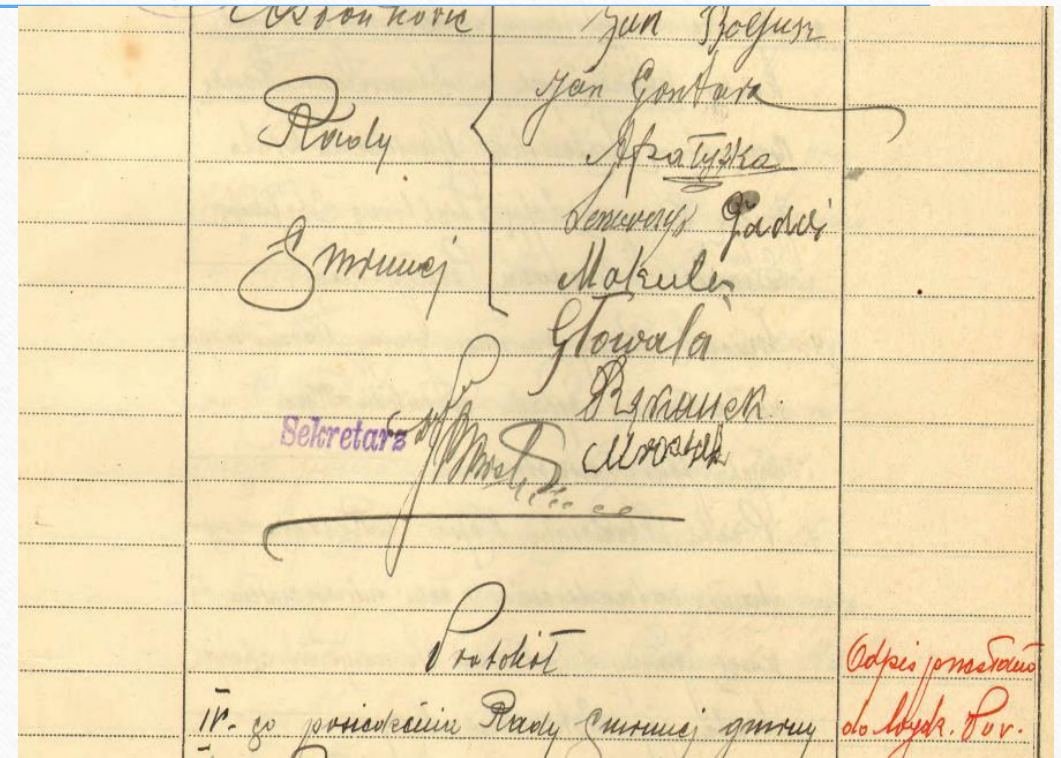 Członkowie
Rady
Gminnej
Jan Bolgusz
Jan Gontarz
Małyszka
Gadaś
Makulec
Głowala
Rymanek
Mrozek
Sekretarz
Protokół
IV-go posiedzenia Rady Gminnej gminy
Odpis przesłano
do Wydz. Pow.